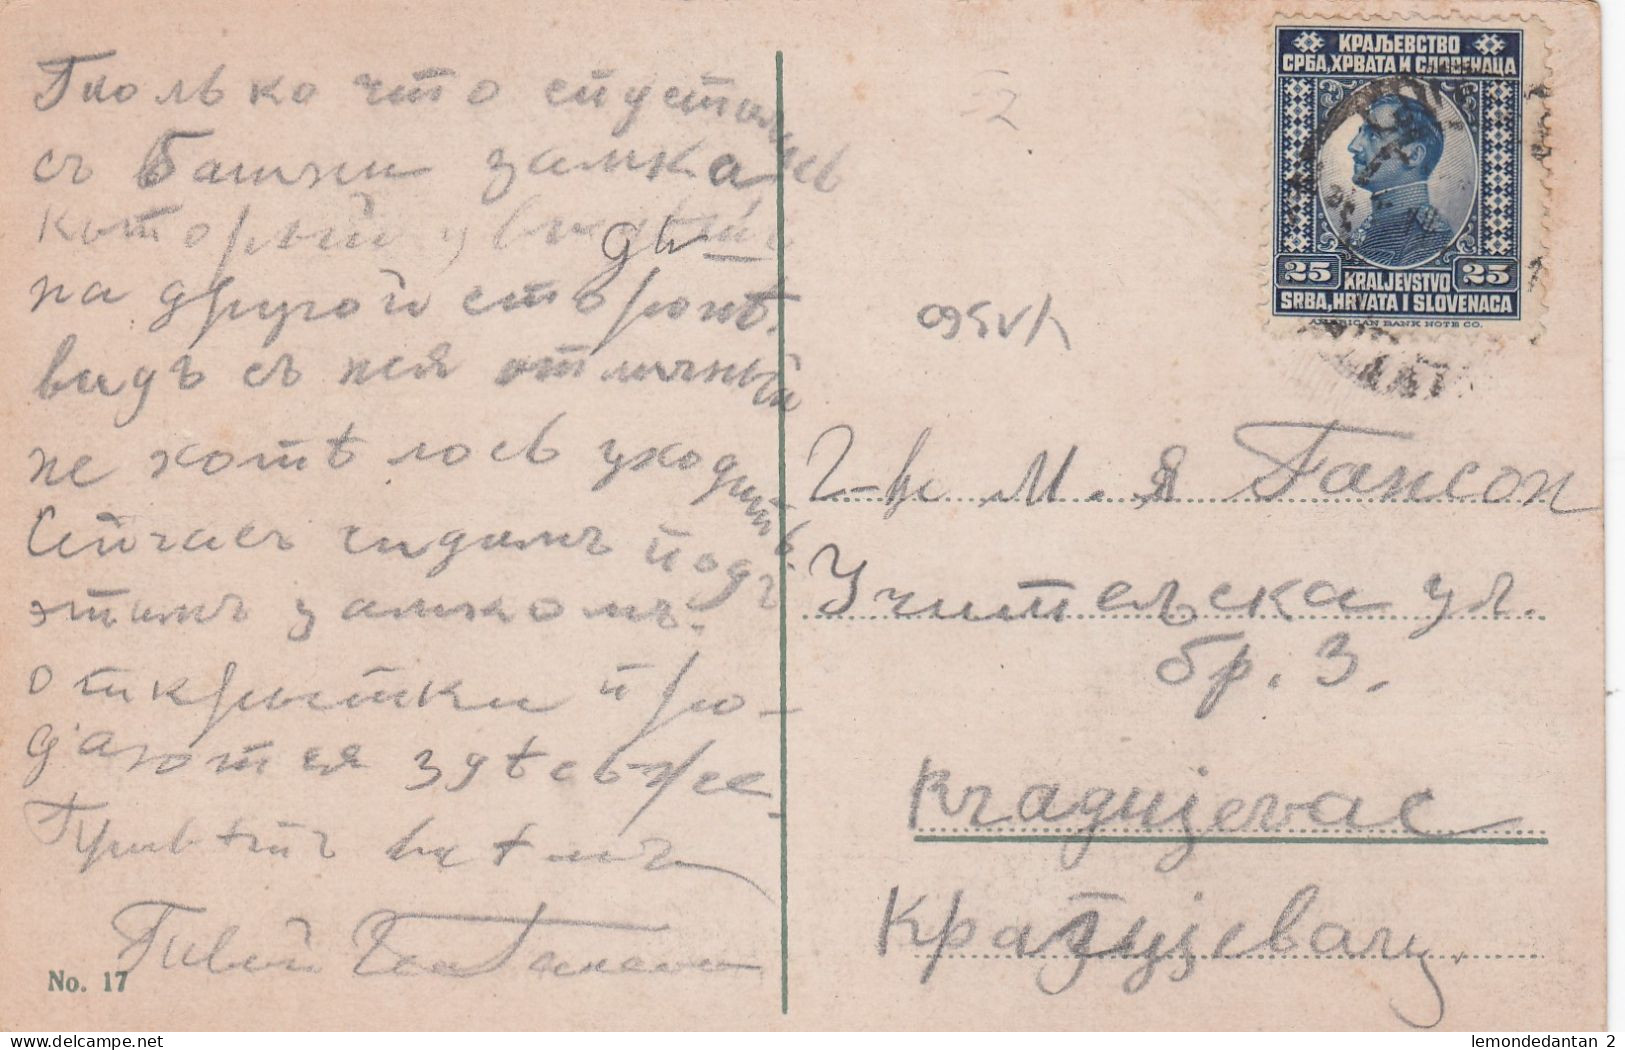 Только что спустились
съ Башни замка
который увидишь
на другой сторонѣ.
видъ съ нея отличный
не хотѣлось уходить.
Сейчасъ сидимъ подъ
этимъ замкомъ.
открытки про-
даются здѣсь-же.
Привѣтъ всѣмъ
Гансонъ
No. 17
52
КРАЉЕВСТВО
СРБА, ХРВАТА И СЛОВЕНАЦА
25 KRALJEVSTVO 25
SRBA, HRVATA I SLOVENACA
AMERICAN BANK NOTE CO.
Г-ну М. Я Гансон
Учительска ул.
бр. 3.
Kragujevac
Крагујевац.
lemondedantan 2